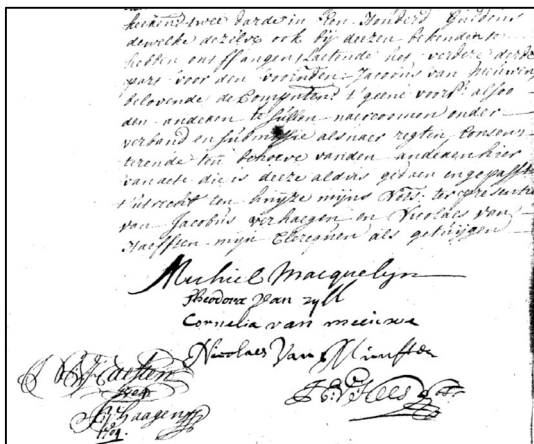 twee darde in Een Honderd Guldens
dewelke dezelve ook bij deezen bekenden te
hebben ontffangen Laetende het verdere derde
part voor den voornden Jacobus van
belovende de Comptten t'geene voorst: alsoo
den anderen te sullen naercoomen onder
verband en submissie als naer regten, Consen-
terende ten behoeve vanden anderen hier
van acte die is deeze aldus gedaen en gepasst
t'utrecht ten huijze mijns Nots. ter presentie
van Jacobus verhaegen en Nicolaes van
Haefften mijn Clercquen als getuijgen
Michiel Macquelyn
Theodora van zyll
Cornelia van
Nicolaes Van
Haagen
Hees Nots.